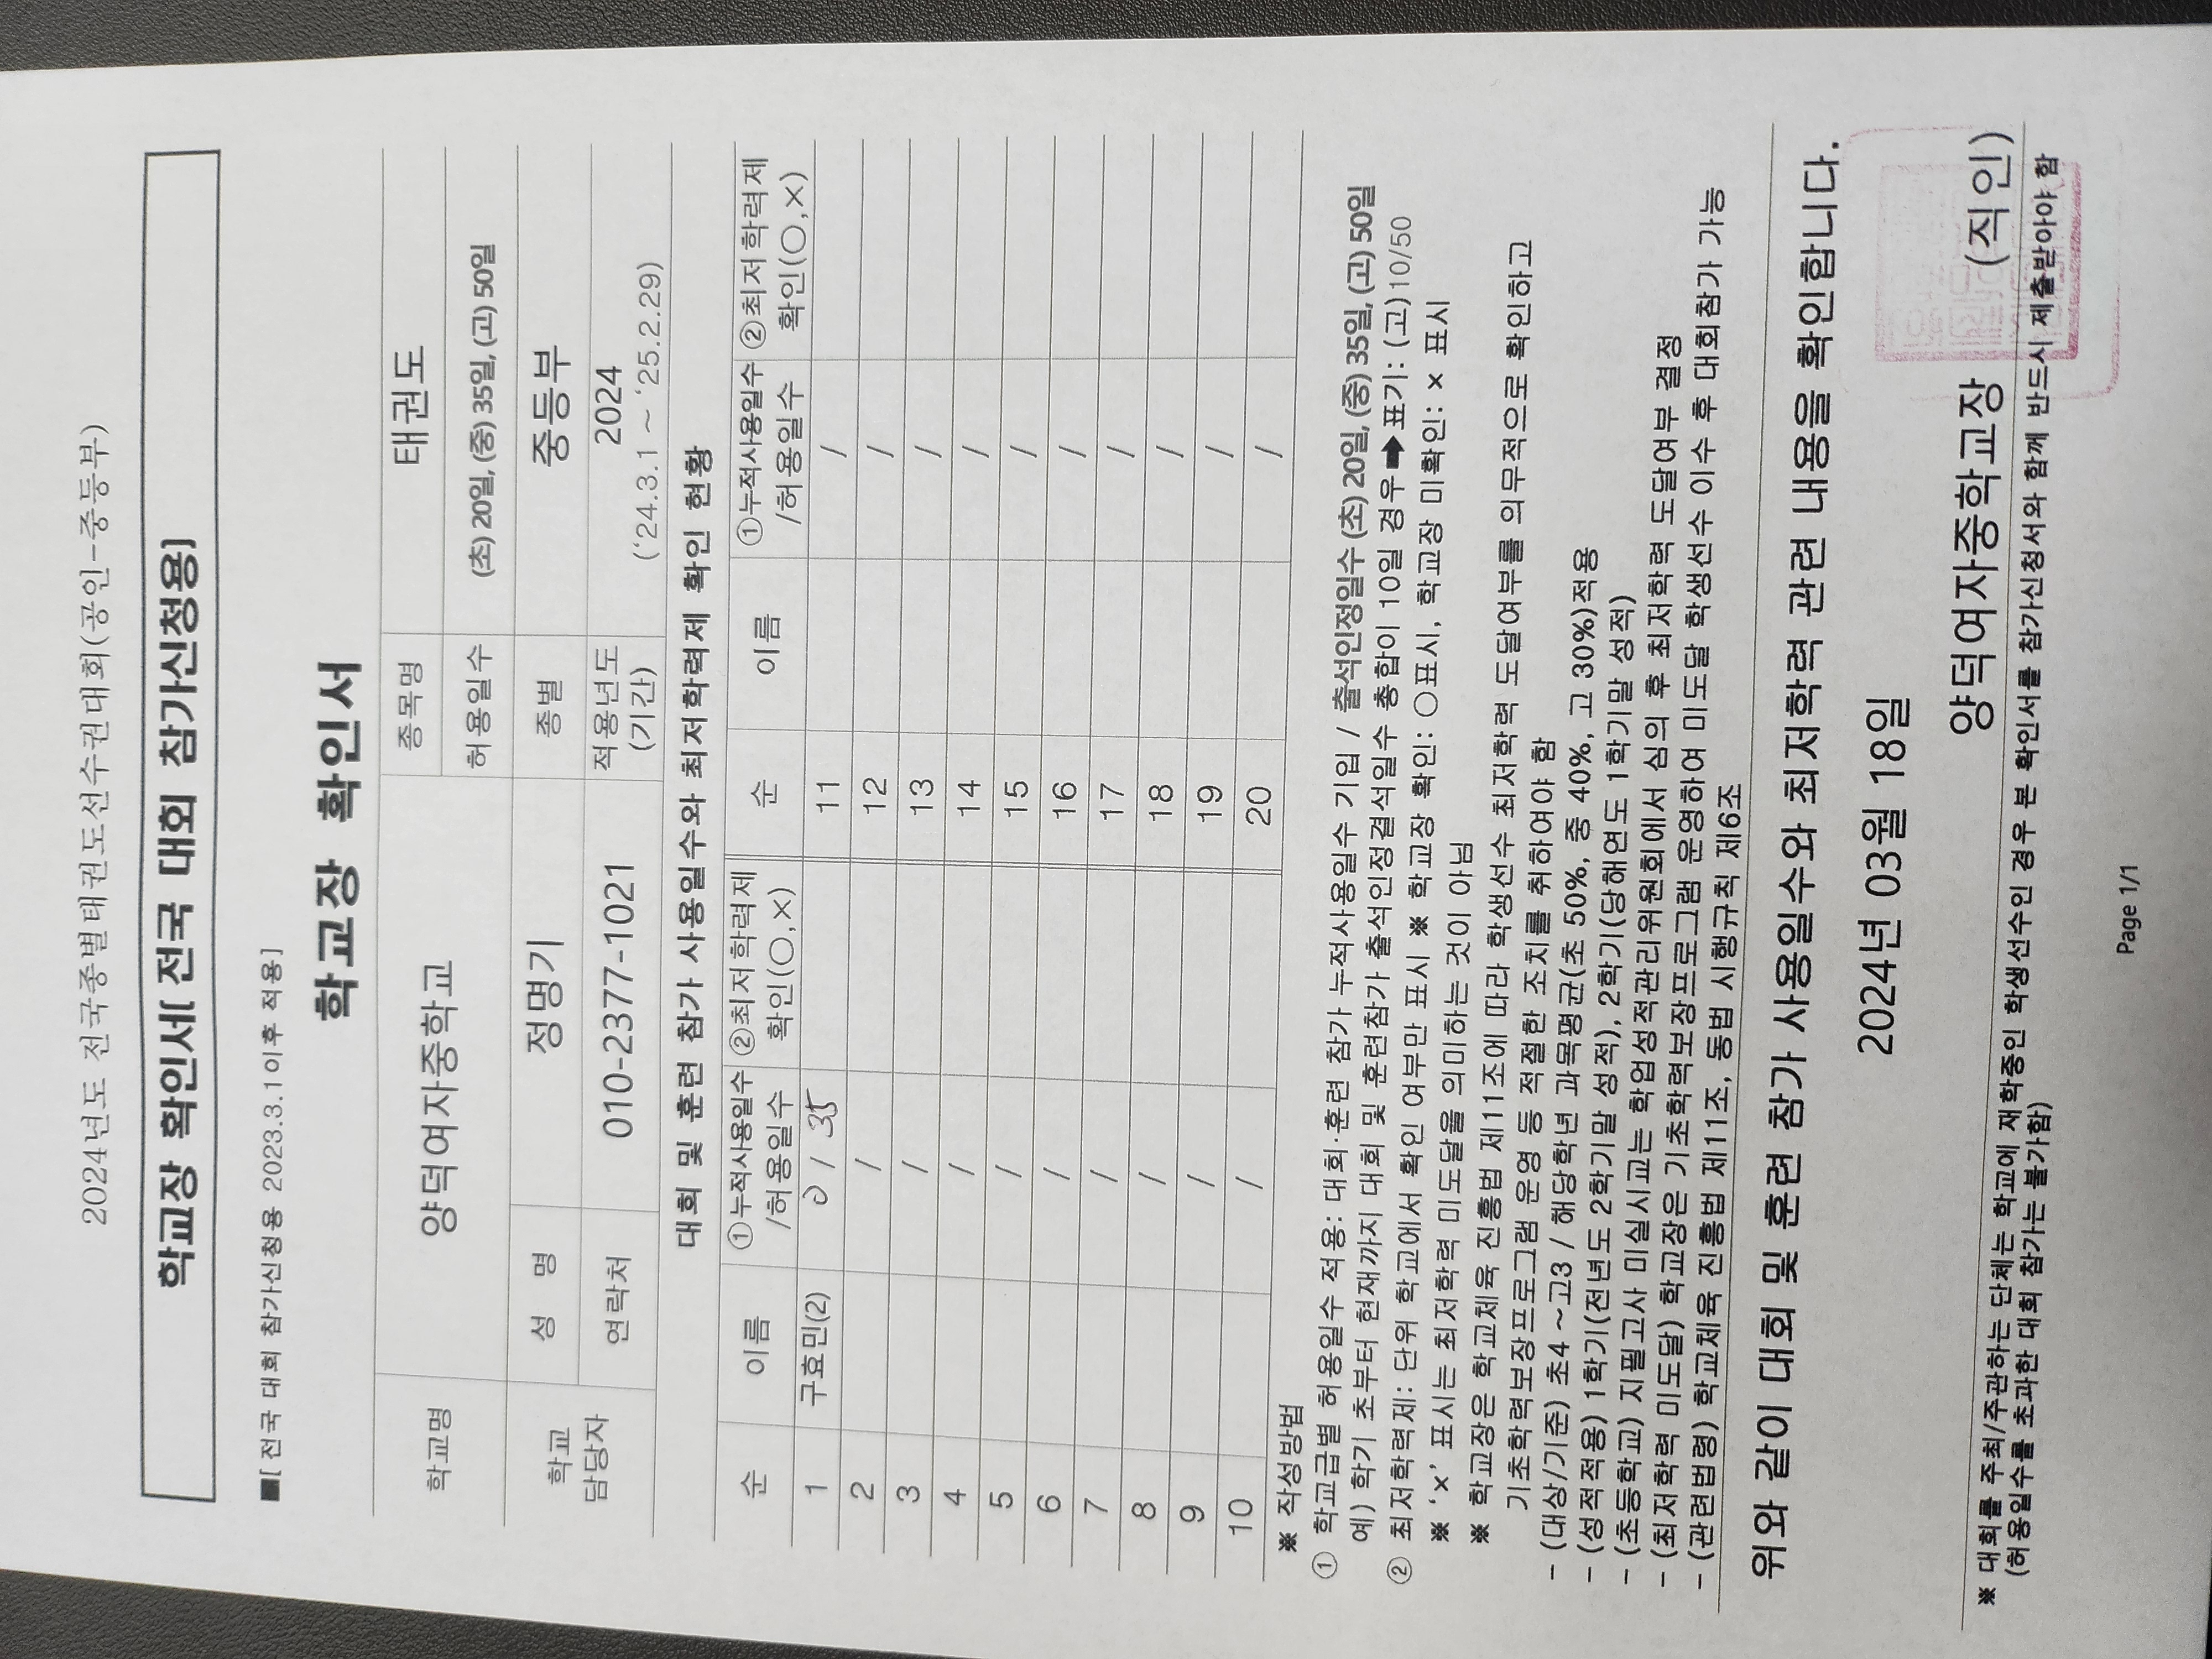 2024년도 전국종별태권도선수권대회(공인-중등부)
학교장 확인서[ 전국 대회 참가신청용]
■[ 전국 대회 참가신청용 2023.3.1이후 적용]
학교장 확인서
학교명 양덕여자중학교 종목명 태권도
허용일수 (초) 20일, (중) 35일, (고) 50일
학교 담당자 성 명 정명기 종별 중등부
연락처 010-2377-1021 적용년도 (기간) 2024 (‘24.3.1 ~ ‘25.2.29)
대회 및 훈련 참가 사용일수와 최저학력제 확인 현황
순 이름 ①누적사용일수 /허용일수 ②최저학력제 확인(○,×) 순 이름 ①누적사용일수 /허용일수 ②최저학력제 확인(○,×)
1 구효민(2) 0 / 35 11 /
2 / 12 /
3 / 13 /
4 / 14 /
5 / 15 /
6 / 16 /
7 / 17 /
8 / 18 /
9 / 19 /
10 / 20 /
※ 작성방법
① 학교급별 허용일수 적용: 대회·훈련 참가 누적사용일수 기입 / 출석인정일수 (초) 20일, (중) 35일, (고) 50일
예) 학기 초부터 현재까지 대회 및 훈련참가 출석인정결석일수 총합이 10일 경우 ➡ 표기: (고)10/50
② 최저학력제: 단위 학교에서 확인 여부만 표시 ※ 학교장 확인: ○표시, 학교장 미확인: × 표시
※ ‘×’ 표시는 최저학력 미도달을 의미하는 것이 아님
※ 학교장은 학교체육 진흥법 제11조에 따라 학생선수 최저학력 도달여부를 의무적으로 확인하고
기초학력보장프로그램 운영 등 적절한 조치를 취하여야 함
- (대상/기준) 초4 ~고3 / 해당학년 과목평균(초 50%, 중 40%, 고 30%)적용
- (성적적용) 1학기(전년도 2학기말 성적), 2학기(당해연도 1학기말 성적)
- (초등학교) 지필고사 미실시교는 학업성적관리위원회에서 심의 후 최저학력 도달여부 결정
- (최저학력 미도달) 학교장은 기초학력보장프로그램 운영하여 미도달 학생선수 이수 후 대회참가 가능
- (관련법령) 학교체육 진흥법 제11조, 동법 시행규칙 제6조
위와 같이 대회 및 훈련 참가 사용일수와 최저학력 관련 내용을 확인합니다.
2024년 03월 18일
양덕여자중학교장 (직인)
※ 대회를 주최/주관하는 단체는 학교에 재학중인 학생선수인 경우 본 확인서를 참가신청서와 함께 반드시 제출받아야 함
(허용일수를 초과한 대회 참가는 불가함)
Page 1/1